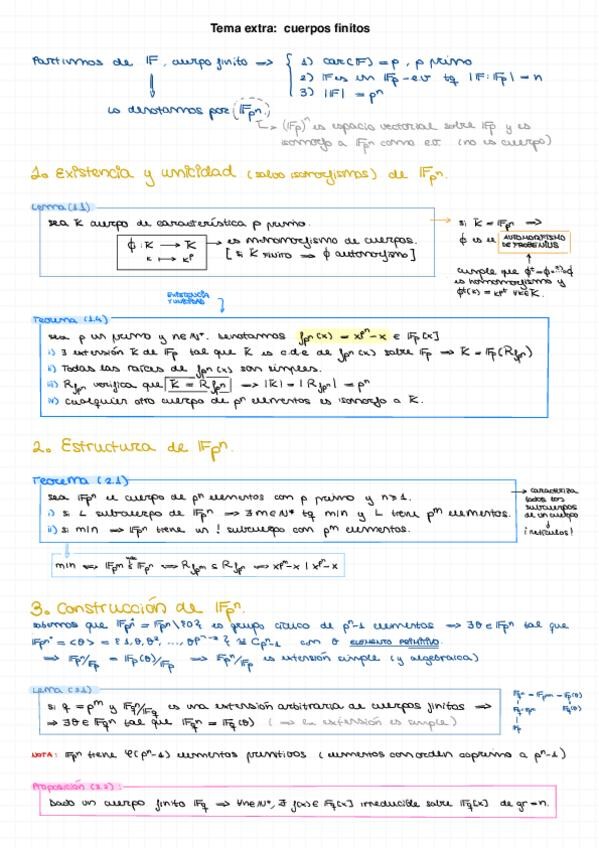 Tema extra: cuerpos finitos
Partimos de 𝔽, cuerpo finito ⟹ { 1) car(𝔽) = p, p primo
2) 𝔽 es un 𝔽p-ev tq |𝔽:𝔽p| = n
3) |𝔽| = pⁿ
lo denotamos por 𝔽pⁿ
↳ (𝔽p)ⁿ es espacio vectorial sobre 𝔽p y es
isomorfo a 𝔽pⁿ como e.v. (no es cuerpo)
1. Existencia y unicidad (salvo isomorfismos) de 𝔽pⁿ.
Lema (1.1)
sea K cuerpo de característica p primo.
ϕ: K ⟶ K → es monomorfismo de cuerpos.
k ⟼ kᵖ [si K finito ⟹ ϕ automorfismo]
si K = 𝔽pⁿ ⟹
ϕ es el AUTOMORFISMO
DE FROBENIUS
cumple que
es homomorfismo y
EXISTENCIA
Y UNICIDAD
Teorema (1.4)
sea p un primo y n∈ℕ*. Denotamos fpⁿ(x) = x^pⁿ - x ∈ 𝔽p[x]
i) ∃ extensión K de 𝔽p tal que K es c.d.e de fpⁿ(x) sobre 𝔽p ⟹ K = 𝔽p(Rfpⁿ)
ii) Todas las raíces de fpⁿ(x) son simples.
iii) Rfpⁿ verifica que K = Rfpⁿ ⟹ |K| = |Rfpⁿ| = pⁿ
iv) cualquier otro cuerpo de pⁿ elementos es isomorfo a K.
2. Estructura de 𝔽pⁿ.
Teorema (2.1)
sea 𝔽pⁿ el cuerpo de pⁿ elementos con p primo y n≥1.
i) si L subcuerpo de 𝔽pⁿ ⟹ ∃ m∈ℕ* tq m|n y L tiene pᵐ elementos.
ii) si m|n ⟹ 𝔽pⁿ tiene un ! subcuerpo con pᵐ elementos.
→ caracteriza
todos los
subcuerpos
de un cuerpo
¡retículos!
m|n ⟺ 𝔽pᵐ ≤ 𝔽pⁿ ⟺ Rfpᵐ ⊆ Rfpⁿ ⟺ x^pᵐ - x | x^pⁿ - x
3. Construcción de 𝔽pⁿ.
sabemos que 𝔽pⁿ* = 𝔽pⁿ\{0} es grupo cíclico de pⁿ-1 elementos ⟹ ∃θ ∈ 𝔽pⁿ tal que
𝔽pⁿ* = <θ> = {1, θ, θ², ..., θ^pⁿ⁻²} ≅ Cpⁿ-1 con θ ELEMENTO PRIMITIVO.
⟹ 𝔽pⁿ/𝔽p = 𝔽p(θ)/𝔽p ⟹ 𝔽pⁿ/𝔽p es extensión simple (y algebraica)
Lema (3.1)
si q = pᵐ y 𝔽qⁿ/𝔽q es una extensión arbitraria de cuerpos finitos ⟹
⟹ ∃θ ∈ 𝔽qⁿ tal que 𝔽qⁿ = 𝔽q(θ) (⟹ la extensión es simple)
NOTA: 𝔽pⁿ tiene φ(pⁿ-1) elementos primitivos (elementos con orden coprimo a pⁿ-1)
Proposición (3.2):
Dado un cuerpo finito 𝔽q ⟹ ∀n∈ℕ*, ∃ f(x)∈𝔽q[x] irreducible sobre 𝔽q[x] de gr=n.